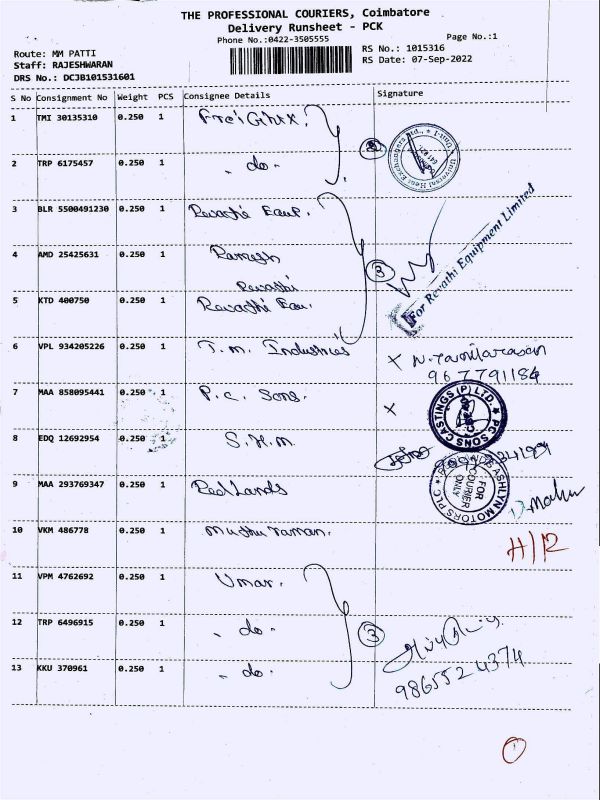 THE PROFESSIONAL COURIERS, Coimbatore
Delivery Runsheet - PCK
Phone No.:0422-3505555
Page No.:1
Route: MM PATTI
RS No.: 1015316
Staff: RAJESHWARAN
RS Date: 07-Sep-2022
DRS No.: DCJB101531601
S No Consignment No Weight PCS Consignee Details Signature
1 TMI 30135310 0.250 1
Universal Heat Exchangers Ltd., * Unit-1
2 TRP 6175457 0.250 1 - do -
3 BLR 5500491230 0.250 1 Revathi Equp.
4 AMD 25425631 0.250 1 Ramesh
Revathi
3
For Revathi Equipment Limited
5 KTD 400750 0.250 1 Revathi Equ.
6 VPL 934205226 0.250 1 T.M. Industries
X N. Tamilarasan
9677791184
7 MAA 858095441 0.250 1 P.C. Sons.
X
PC SONS CASTINGS (P) LTD.
8 EDQ 12692954 0.250 1 S.H.M
9 MAA 293769347 0.250 1 Redlands
ASHLYN MOTORS PLC
FOR COURIER ONLY
10 VKM 486778 0.250 1 Muthu raman.
H/12
11 VPM 4762692 0.250 1 Umar.
12 TRP 6496915 0.250 1 - do -
3
13 KKU 370961 0.250 1 - do -
9865524374
1